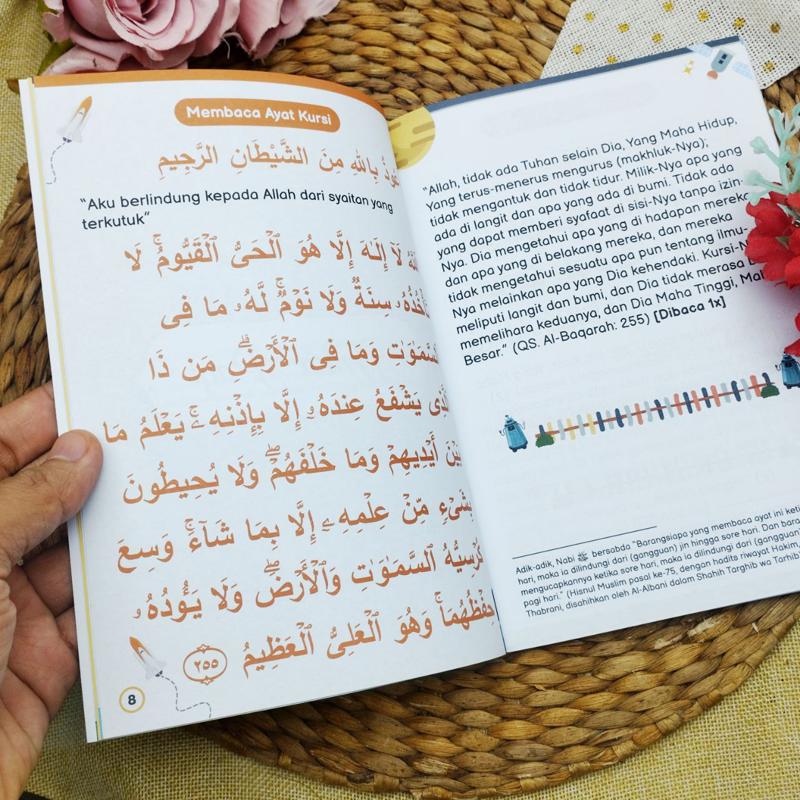 Membaca Ayat Kursi
بِاللهِ مِنَ الشَّيْطَانِ الرَّجِيمِ
“Aku berlindung kepada Allah dari syaitan yang
terkutuk”
لَآ إِلَـٰهَ إِلَّا هُوَ ٱلْحَىُّ ٱلْقَيُّومُ ۚ لَا
سِنَةٌ وَلَا نَوْمٌ ۚ لَّهُۥ مَا فِى
وَمَا فِى ٱلْأَرْضِ ۗ مَن ذَا
يَشْفَعُ عِندَهُۥٓ إِلَّا بِإِذْنِهِۦ ۚ يَعْلَمُ مَا
بَيْنَ أَيْدِيهِمْ وَمَا خَلْفَهُمْ ۖ وَلَا يُحِيطُونَ
بِشَىْءٍ مِّنْ عِلْمِهِۦٓ إِلَّا بِمَا شَآءَ ۚ وَسِعَ
كُرْسِيُّهُ ٱلسَّمَـٰوَٰتِ وَٱلْأَرْضَ ۖ وَلَا يَـُٔودُهُۥ
حِفْظُهُمَا ۚ وَهُوَ ٱلْعَلِىُّ ٱلْعَظِيمُ ٢٥٥
8
“Allah, tidak ada Tuhan selain Dia, Yang Maha Hidup,
Yang terus-menerus mengurus (makhluk-Nya);
tidak mengantuk dan tidak tidur. Milik-Nya apa yang
ada di langit dan apa yang ada di bumi. Tidak ada
yang dapat memberi syafaat di sisi-Nya tanpa izin-
Nya. Dia mengetahui apa yang di hadapan mereka
dan apa yang di belakang mereka, dan mereka
tidak mengetahui sesuatu apa pun tentang ilmu-
Nya melainkan apa yang Dia kehendaki. Kursi-
meliputi langit dan bumi, dan Dia tidak merasa
memelihara keduanya, dan Dia Maha Tinggi,
Besar.” (QS. Al-Baqarah: 255) [Dibaca 1x]
Adik-adik, Nabi ﷺ bersabda “Barangsiapa yang membaca ayat ini
hari, maka ia dilindungi dari (gangguan) jin hingga sore hari. Dan
mengucapkannya ketika sore hari, maka ia dilindungi dari (gangguan)
pagi hari.” (Hisnul Muslim pasal ke-75, dengan hadits riwayat Hakim,
Thabrani, disahihkan oleh Al-Albani dalam Shahih Targhib wa Tarhib